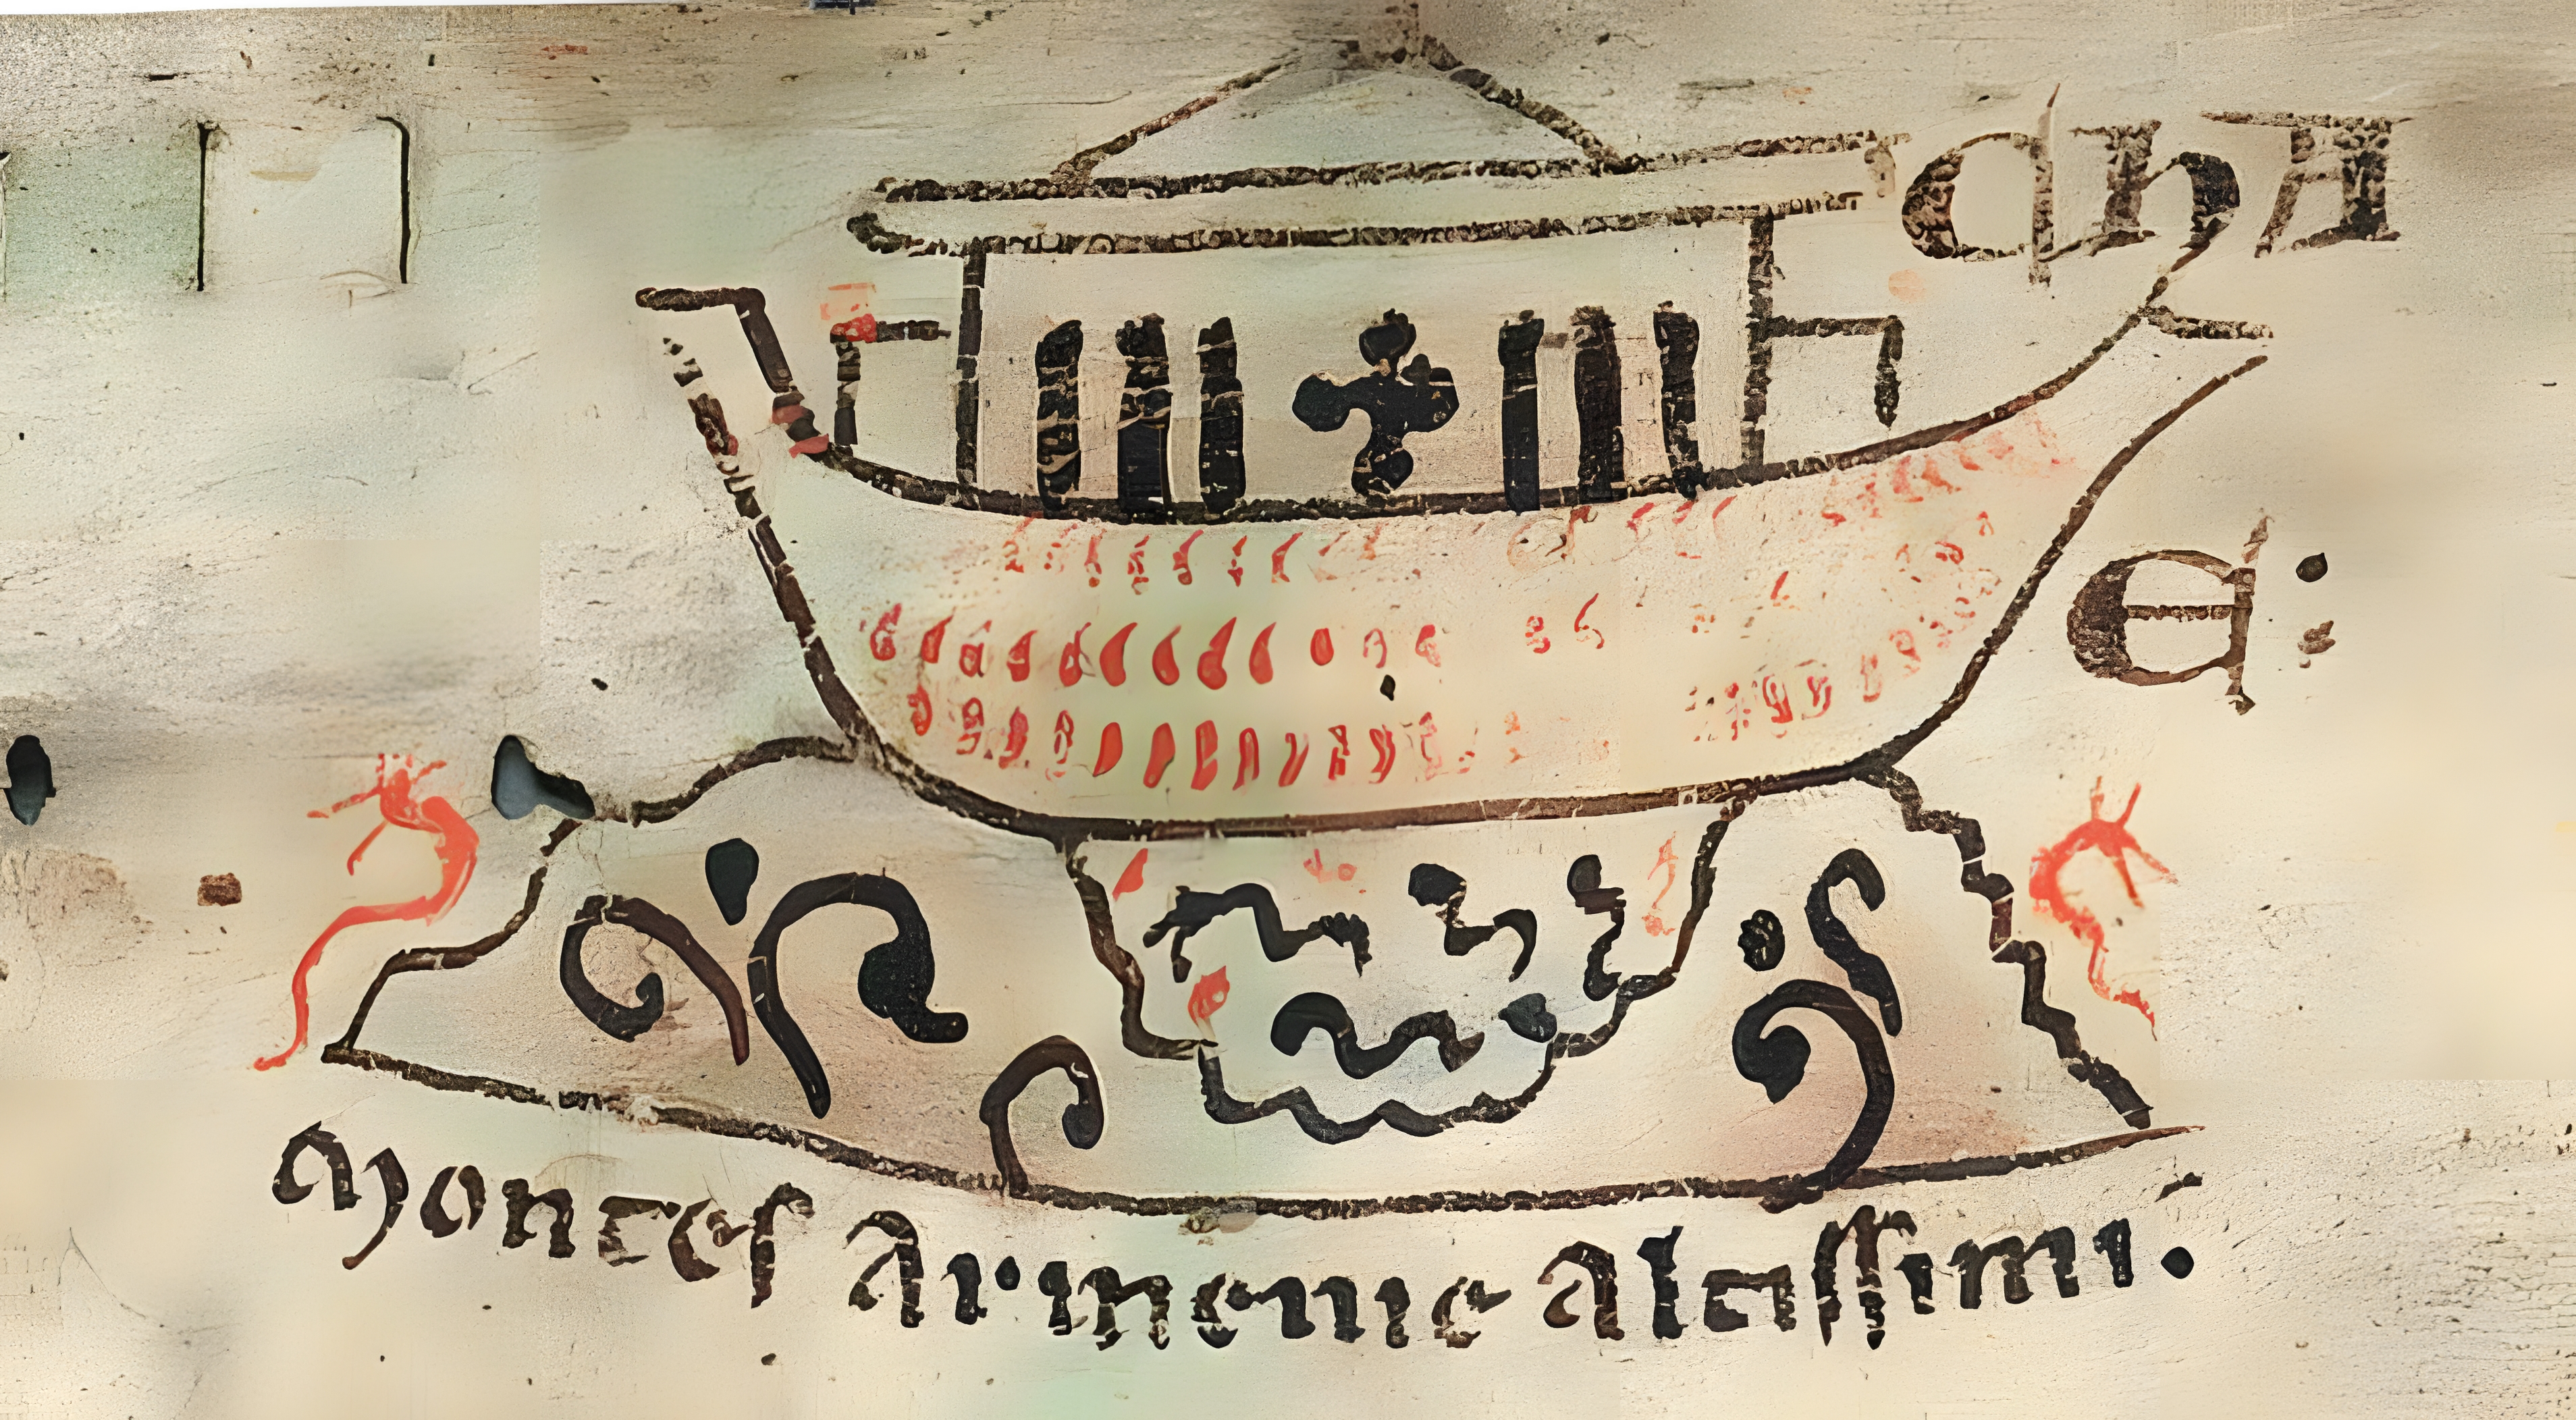 chA
e:
Montes Armenie Altissimi.